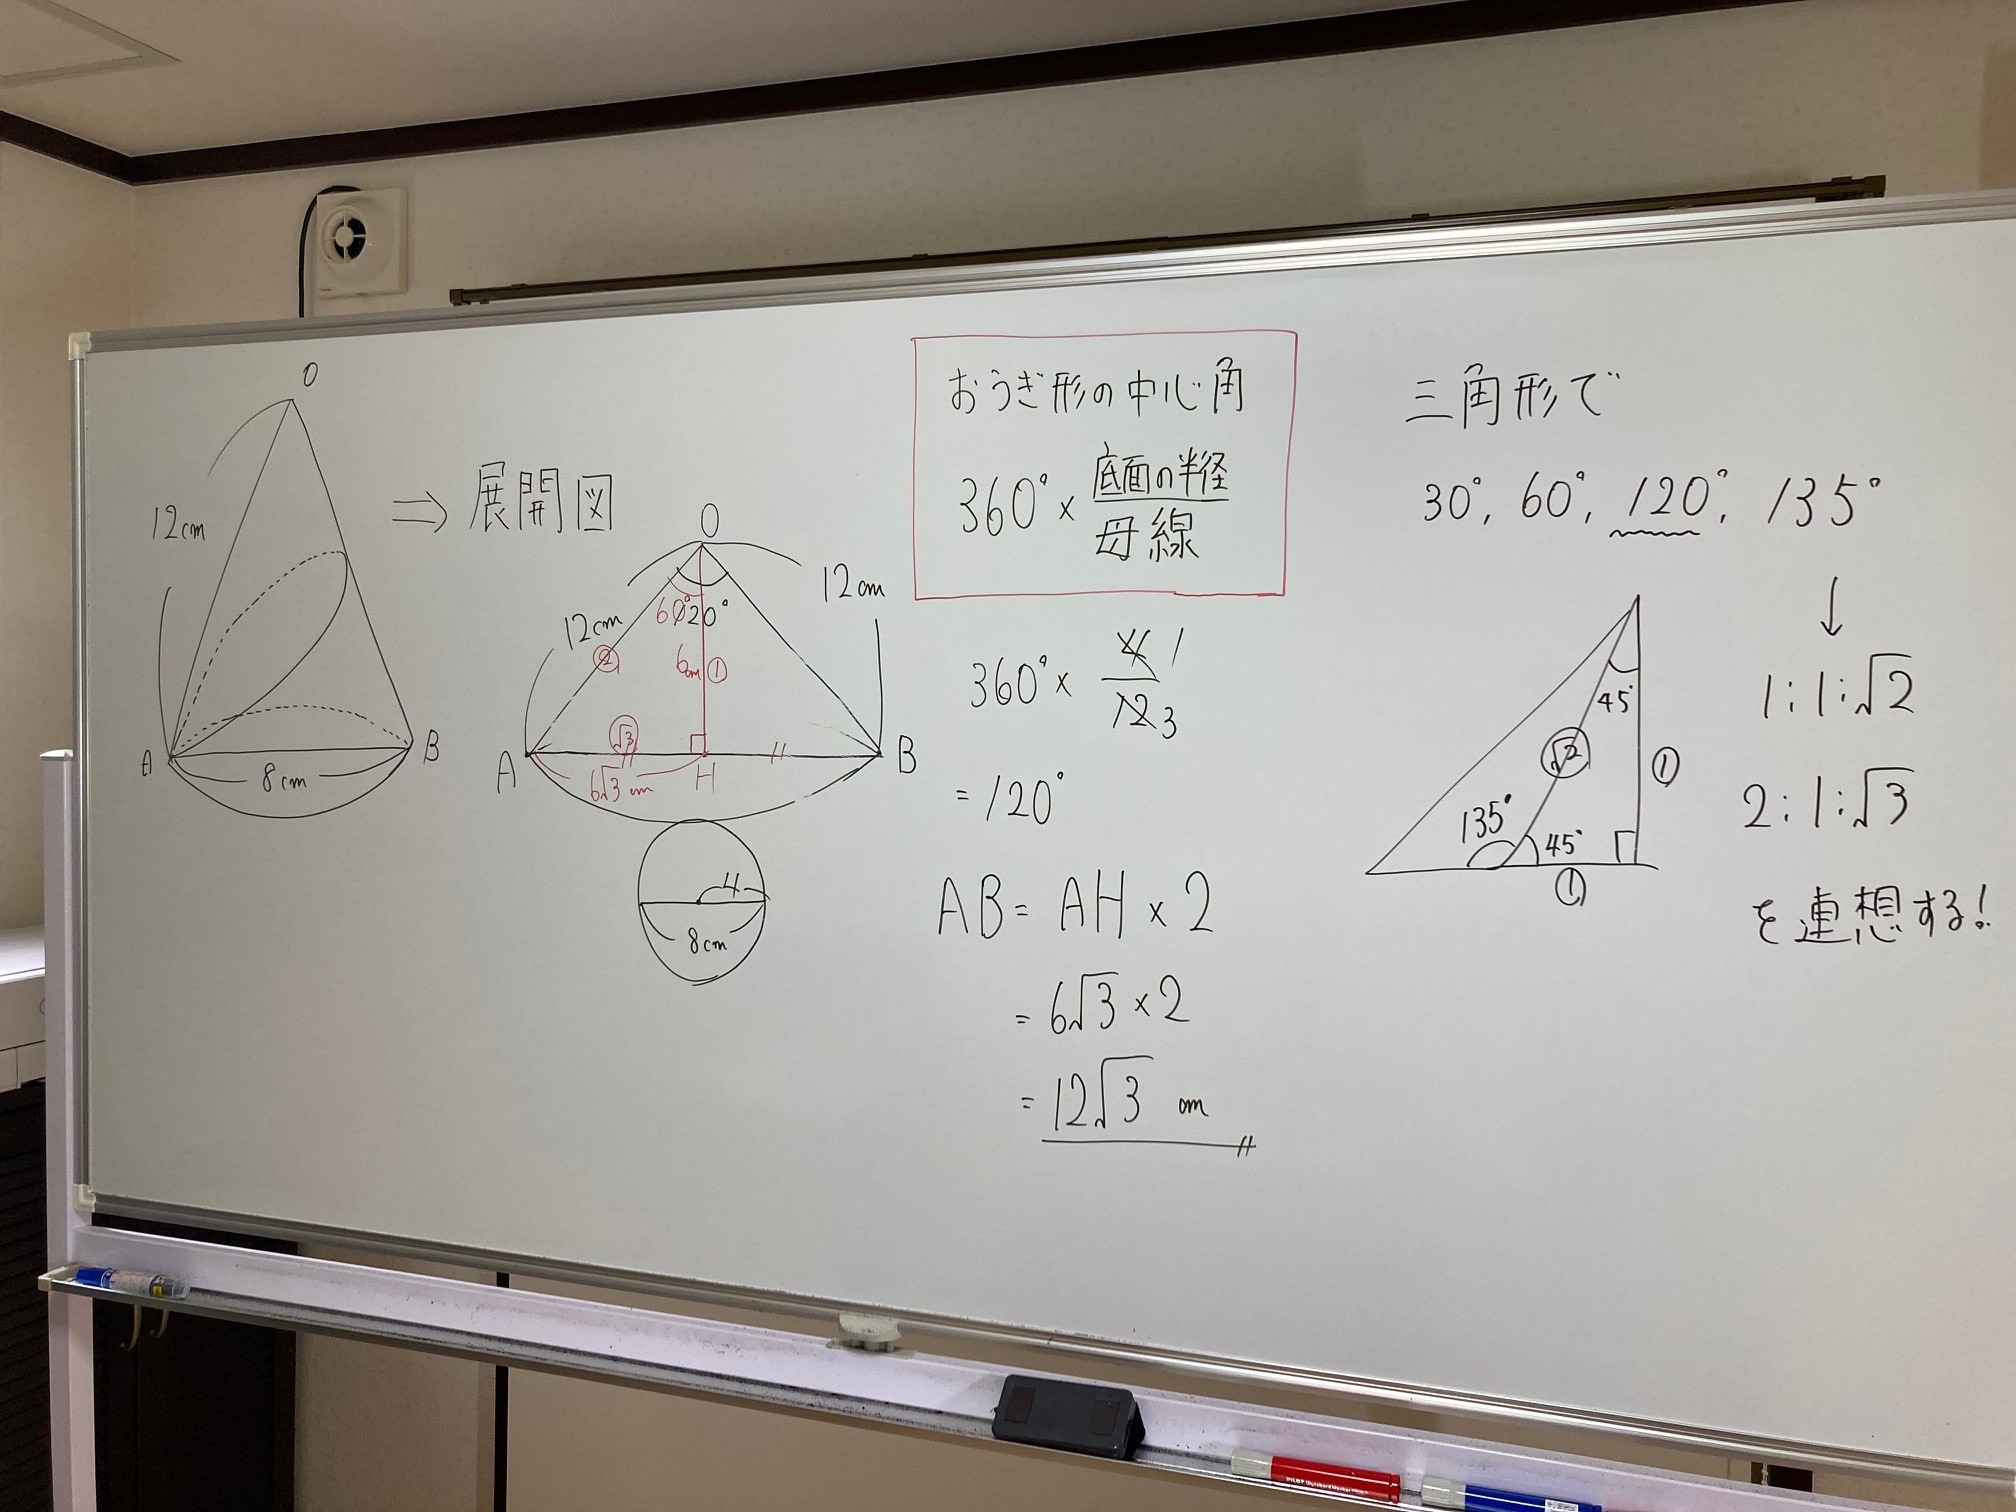 O
12cm
A
B
8cm
⇒ 展開図
O
12cm
12cm
60°
120°
②
6cm
①
√3
6√3 cm
A
H
B
4
8cm
おうぎ形の中心角
360°× 底面の半径/母線
360°× 4/12 1/3
= 120°
AB = AH × 2
= 6√3 × 2
= 12√3 cm
三角形で
30°, 60°, 120°, 135°
↓
1:1:√2
2:1:√3
を連想する!
45°
√2
①
135°
45°
①
PILOT